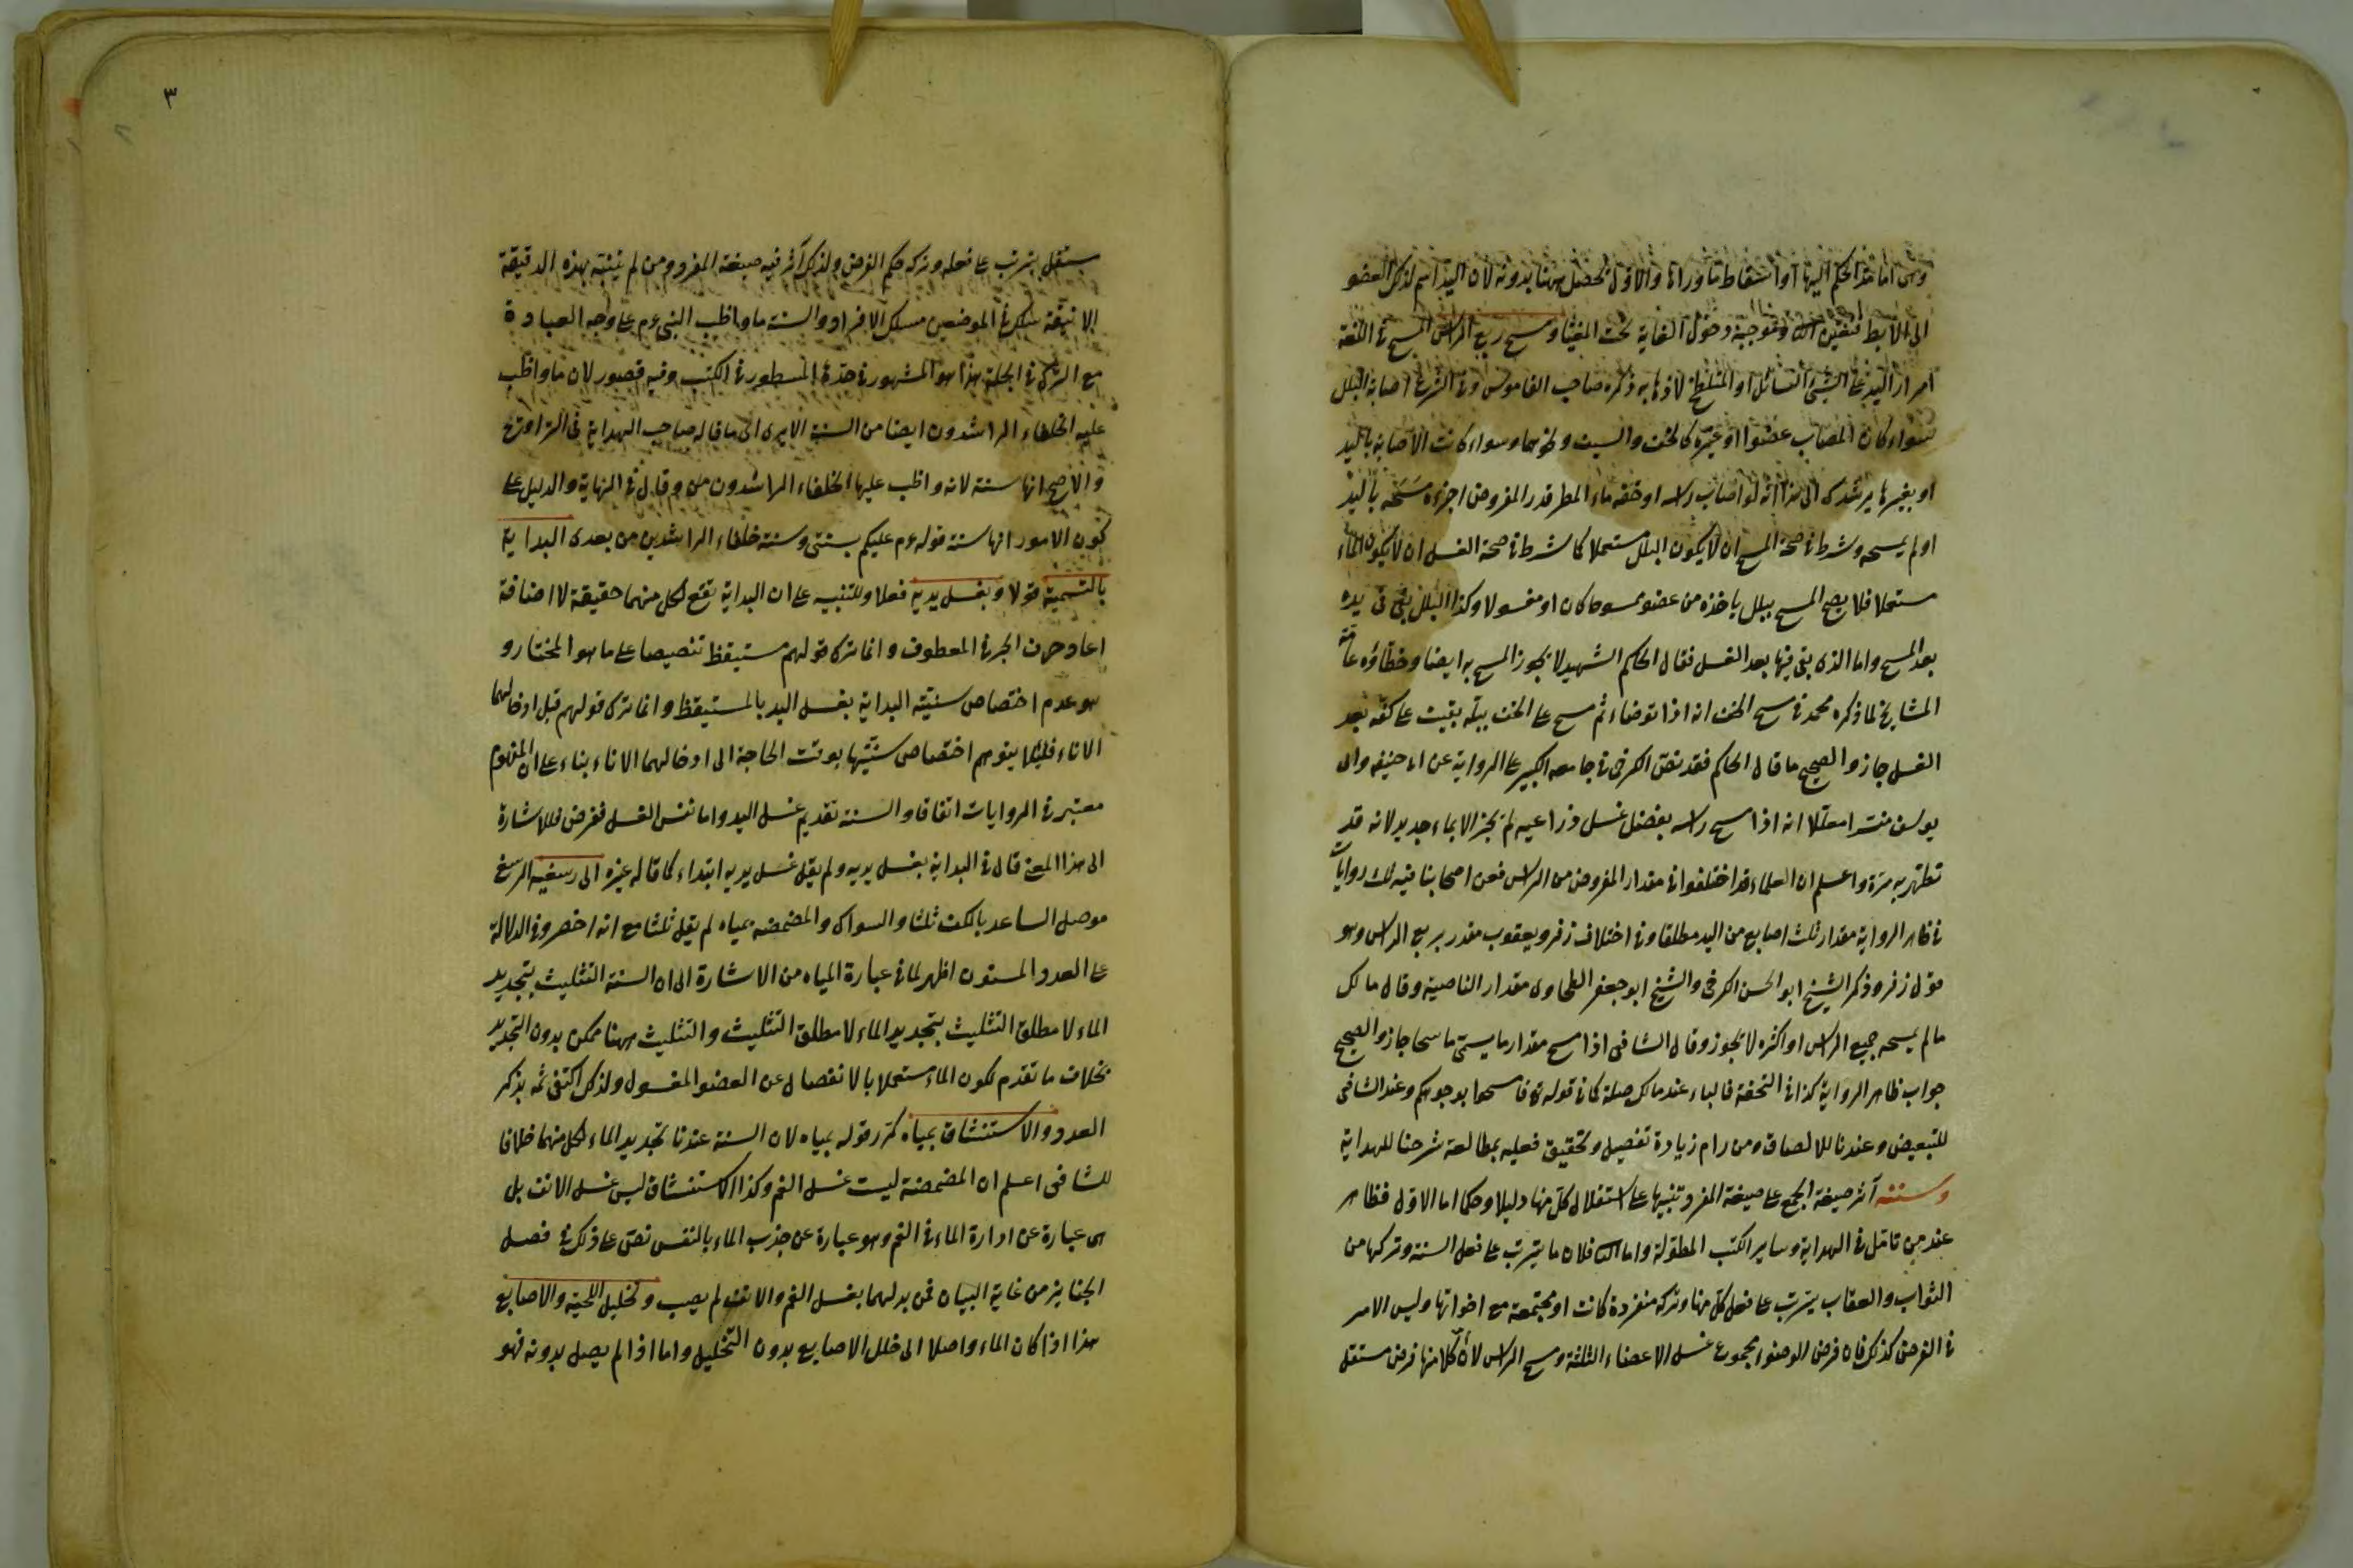 وهى اما مد الحكم اليها او اسقاط ما وراها والاول يحصل ههنا بدونه لان اليد اسم لذلك العضو
الى الابط فتعين الثانى وموجبه دخول الغاية تحت المغيا ومسح ربع الراس المسح فى اللغة
امرار اليد على الشئ السائل او المتلطخ لاذهابه ذكره صاحب القاموس وفى الشرع اصابة البلل
سواء كان المصاب عضوا او غيره كالخف والسيف ونحوهما وسواء كانت الاصابة باليد
او بغيرها يرشدك الى هذا انه لو اصاب راسه او خفه ماء المطر قدر المفروض اجزءه مسحه باليد
او لم يمسحه وشرط فى صحة المسح ان لا يكون البلل مستعملا كما شرط فى صحة الغسل ان لا يكون الماء
مستعملا فلا يصح المسح ببلل ياخذه من عضو ممسوحا كان او مغسولا وكذا البلل بقى فى يده
بعد المسح واما الذى بقى فيها بعد الغسل فقال الحاكم الشهيد لا يجوز المسح به ايضا وخطاؤه عامة
المشايخ لما ذكره محمد فى مسح الخف انه اذا توضاء ثم مسح على الخف ببلة بقيت على كفه بعد
الغسل جاز والصحيح ما قال الحاكم فقد نص الكرخى فى جامعه الكبير على الرواية عن ابى حنيفة وابى
يوسف مفسرا معللا انه اذا مسح راسه بفضل غسل ذراعيه لم يجز الا بماء جديد لانه قد
تطهر به مرة واعلم ان العلماء قد اختلفوا فى مقدار المفروض من الراس فعن اصحابنا فيه ثلث روايات
فى ظاهر الرواية مقدار ثلث اصابع من اليد مطلقا وفى اختلاف زفر ويعقوب مقدر بربع الراس وهو
قول زفر وذكر الشيخ ابو الحسن الكرخى والشيخ ابو جعفر الطحاوى مقدار الناصية وقال مالك
ما لم يمسح جميع الراس او اكثره لا يجوز وقال الشافعى اذا مسح مقدار ما يسمى ماسحا جاز والصحيح
جواب ظاهر الرواية كذا فى التحفة فالباء عند مالك صلة كما فى قوله تع فامسحوا بوجوهكم وعند الشافعى
للتبعيض وعندنا للالصاق ومن رام زيادة تفصيل وتحقيق فعليه بمطالعة شرحنا للهداية
وسننه آثر صيغة الجمع على صيغة المفرد تنبيها على استقلال كل منها دليلا وحكما اما الاول فظاهر
عند من تامل فى الهداية وساير الكتب المطولة واما الثانى فلان ما يترتب على فعل السنة وتركها من
الثواب والعقاب يترتب على فعل كل منها وتركه منفردة كانت او مجتمعة مع اخواتها وليس الامر
فى الفرض كذلك فان فرض الوضوء مجموع غسل الاعضاء الثلثة ومسح الراس لا ان كلا منها فرض مستقل
٣
مستقل يترتب على فعله وتركه حكم الفرض ولذلك آثر فيه صيغة المفرد ومن لم يتنبه بهذه الدقيقة
الانيقة سلك فى الموضعين مسلك الافراد والسنة ما واظب النبى عم على وجه العبادة
مع الترك فى الجملة هذا هو المشهور فى حده المسطور فى الكتب وفيه قصور لان ما واظب
عليه الخلفاء الراشدون ايضا من السنة الا يرى الى ما قاله صاحب الهداية فى التراويح
والاصح انها سنة لانه واظب عليها الخلفاء الراشدون وقال فى النهاية والدليل على
كون الامور انها سنة قوله عم عليكم بسنتى وسنة خلفاء الراشدين من بعدى البداية
بالتسمية قولا وبغسل يديه فعلا وللتنبيه على ان البداية تقع لكل منهما حقيقة لا اضافة
اعاد حرف الجر فى المعطوف وانما ترك قولهم مستيقظ تنصيصا على ما هو المختار و
هو عدم اختصاص سنية البداية بغسل اليد بالمستيقظ وانما ترك قولهم قبل ادخالهما
الاناء فلئلا يتوهم اختصاص سنيتها بوقت الحاجة الى ادخالهما الاناء بناء على ان المفهوم
معتبر فى الروايات اتفاقا والسنة تقديم غسل اليد واما نفس الغسل ففرض فللاشارة
الى هذا المعنى قال فى البداية بغسل يديه ولم يقل غسل يديه ابتداء كما قاله غيره الى رسغيه الرسغ
موصل الساعد بالكف ثلثا والسواك والمضمضة بمياه لم يقل ثلثا مع انه اخصر وفى الدلالة
على العدد المسنون اظهر لما فى عبارة المياه من الاشارة الى ان السنة التثليث بتجديد
الماء لا مطلق التثليث بتجديد الماء لا مطلق التثليث والتثليث ههنا ممكن بدون التجديد
بخلاف ما تقدم لكون الماء مستعملا بالانفصال عن العضو المغسول ولذلك اكتفى ثمه بذكر
العدد والاستنشاق بمياه كرر قوله بمياه لان السنة عندنا تجديد الماء لكل منهما خلافا
للشافعى اعلم ان المضمضة ليست غسل الفم وكذا الاستنشاق ليس غسل الانف بل
هى عبارة عن ادارة الماء فى الفم وهو عبارة عن جذب الماء بالنفس نص على ذلك فى فصل
الجنايز من غاية البيان فمن بدلهما بغسل الفم والانف لم يصب وتخليل اللحية والاصابع
هذا اذا كان الماء واصلا الى خلل الاصابع بدون التخليل واما اذا لم يصل بدونه فهو